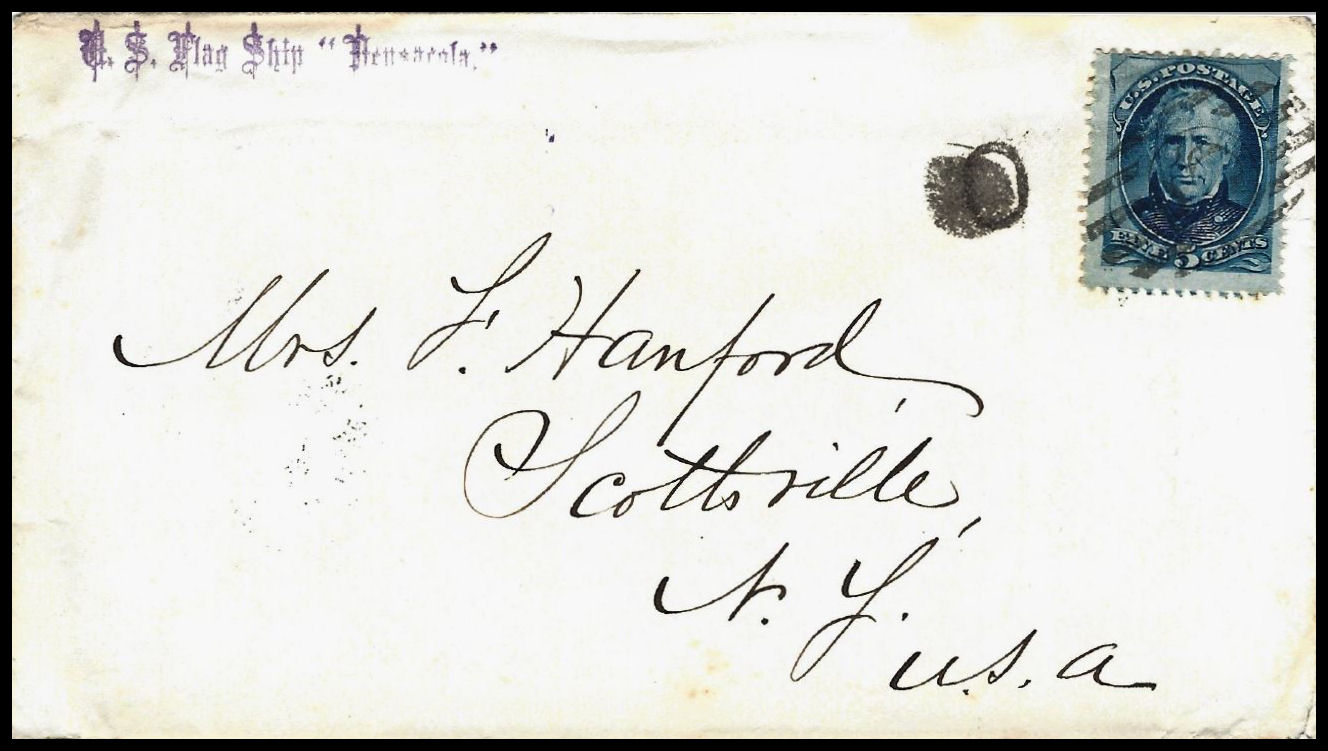 U. S. Flag Ship “Pensacola.”
U.S. POSTAGE
FIVE 5 CENTS
Mrs. F. Hanford,
Scottsville,
N. Y.
U.S.A